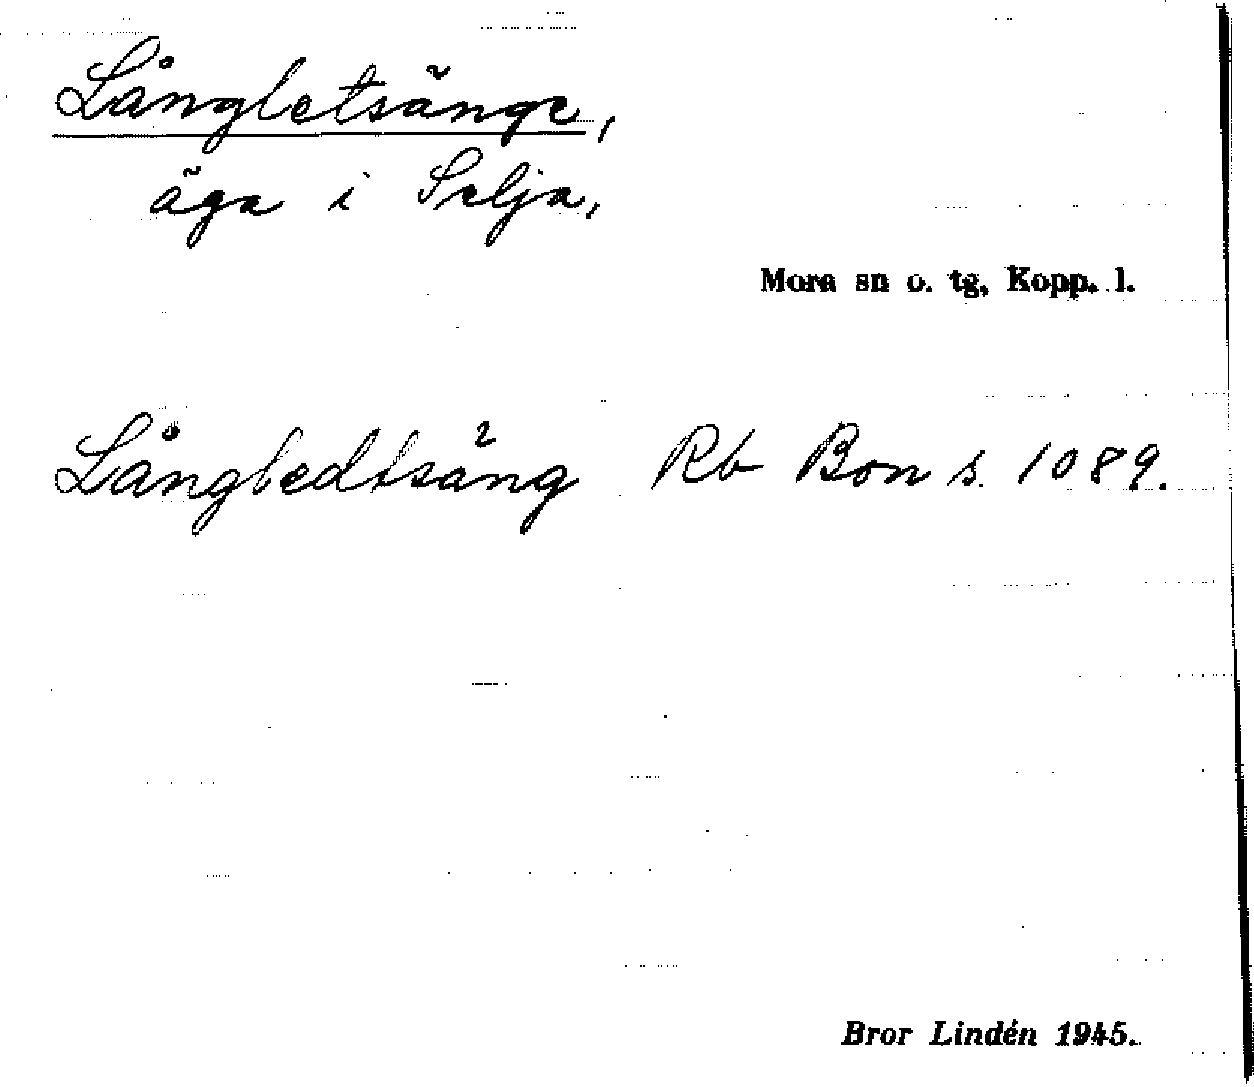 Långletsänge,
äga i Selja,
Mora sn o. tg, Kopp. l.
Långledtsäng Rb Bon s. 1089.
Bror Lindén 1945.